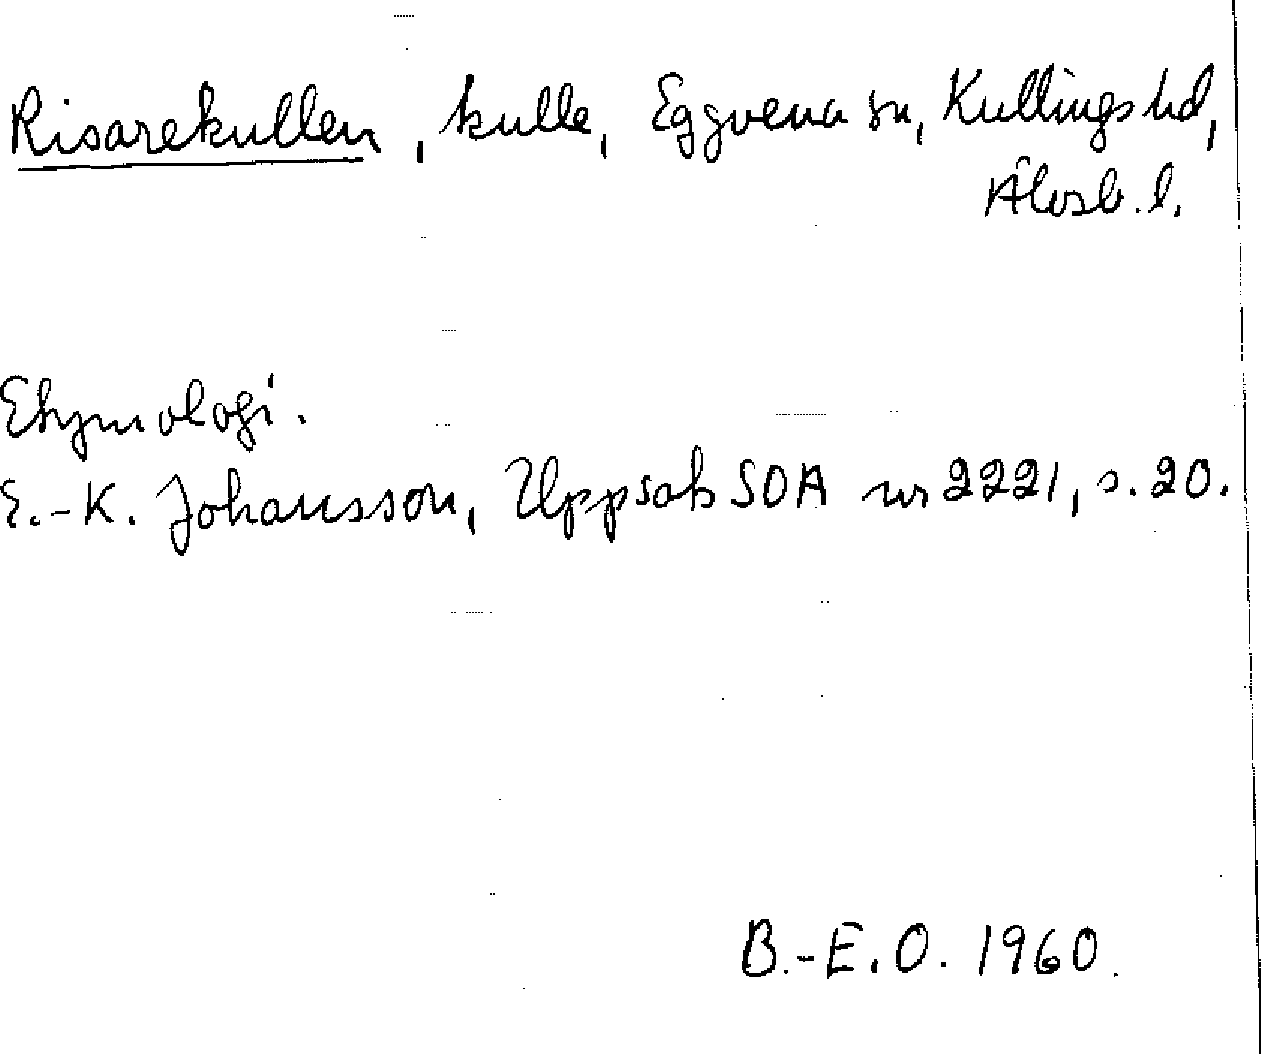 Risarekullen, kulle, Eggvena sn, Kullings hd,
Älvsb. l.
Etymologi.
E.-K. Johansson, Uppsats SOA nr 2221, s. 20.
B.-E. O. 1960.